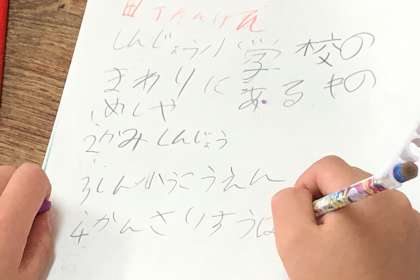 しんじょう小学校の
まわりにあるもの
1 めしや
2 かみしんじょう
3 しんかうこうえん
4 かんさりすうは